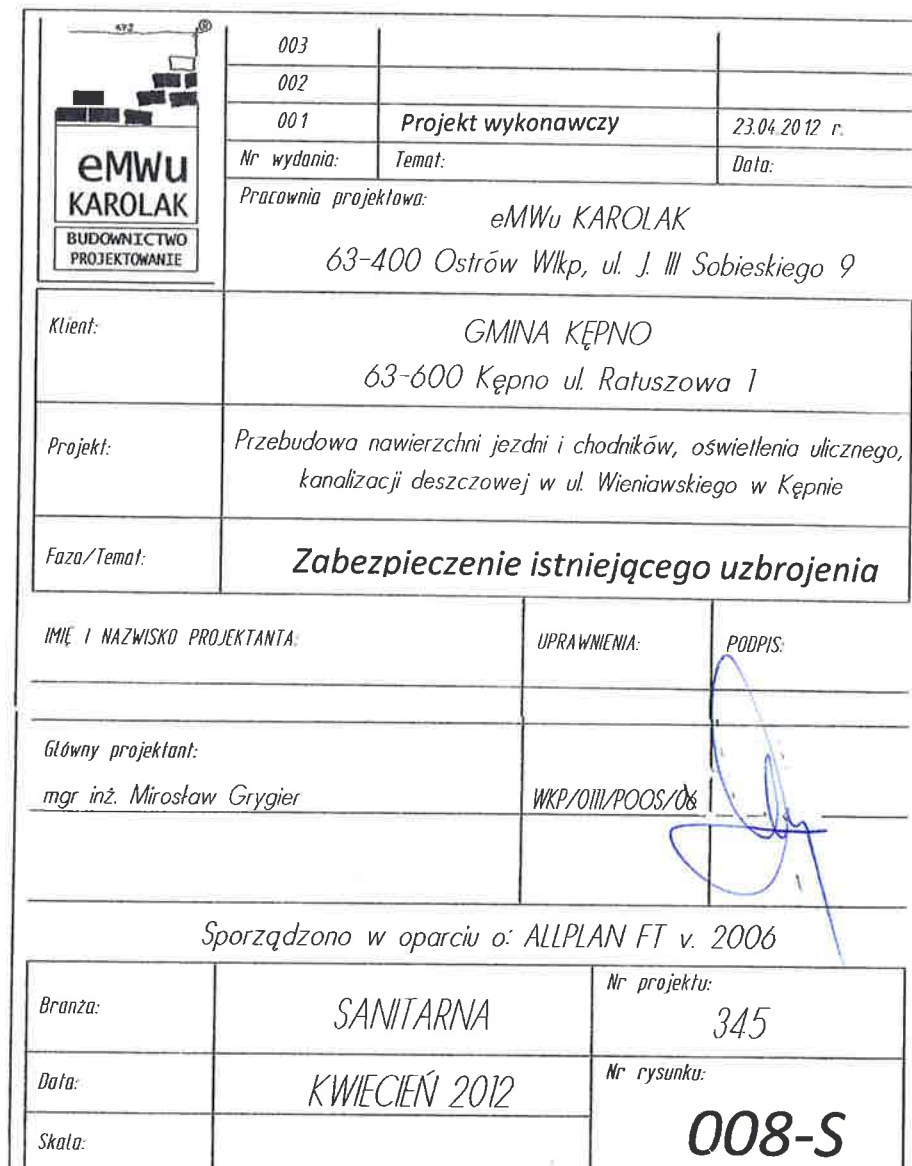 eMWu
KAROLAK
BUDOWNICTWO
PROJEKTOWANIE
003
002
001 Projekt wykonawczy 23.04.2012 r.
Nr wydania: Temat: Data:
Pracownia projektowa:
eMWu KAROLAK
63-400 Ostrów Wlkp, ul. J. III Sobieskiego 9
Klient:
GMINA KĘPNO
63-600 Kępno ul. Ratuszowa 1
Projekt:
Przebudowa nawierzchni jezdni i chodników, oświetlenia ulicznego,
kanalizacji deszczowej w ul. Wieniawskiego w Kępnie
Faza/Temat:
Zabezpieczenie istniejącego uzbrojenia
IMIĘ I NAZWISKO PROJEKTANTA: UPRAWNIENIA: PODPIS:
Główny projektant:
mgr inż. Mirosław Grygier WKP/0111/POOS/06
Sporządzono w oparciu o: ALLPLAN FT v. 2006
Branża: SANITARNA
Nr projektu:
345
Data: KWIECIEŃ 2012
Nr rysunku:
008-S
Skala: